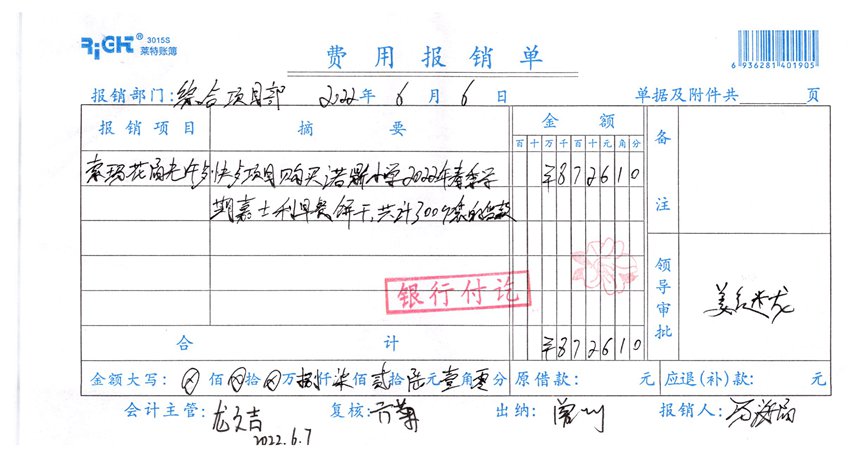 RiGHT® 3015S
莱特账簿
费用报销单
6 936281 401905
报销部门:综合项目部 2022年 6月 6日 单据及附件共 页
报销项目 摘要 金额 备注
百十万千百十元角分
索玛花 项目购买 小学2022年春季学 ¥872610
期嘉士利早餐饼干,共计300 袋的货款
银行付讫
领导审批
合计 ¥872610
金额大写: ⊗佰⊗拾⊗万捌仟柒佰贰拾陆元壹角零分 原借款: 元 应退(补)款: 元
会计主管: 龙 吉 复核: 出纳: 曾 报销人: 冯
2022.6.7